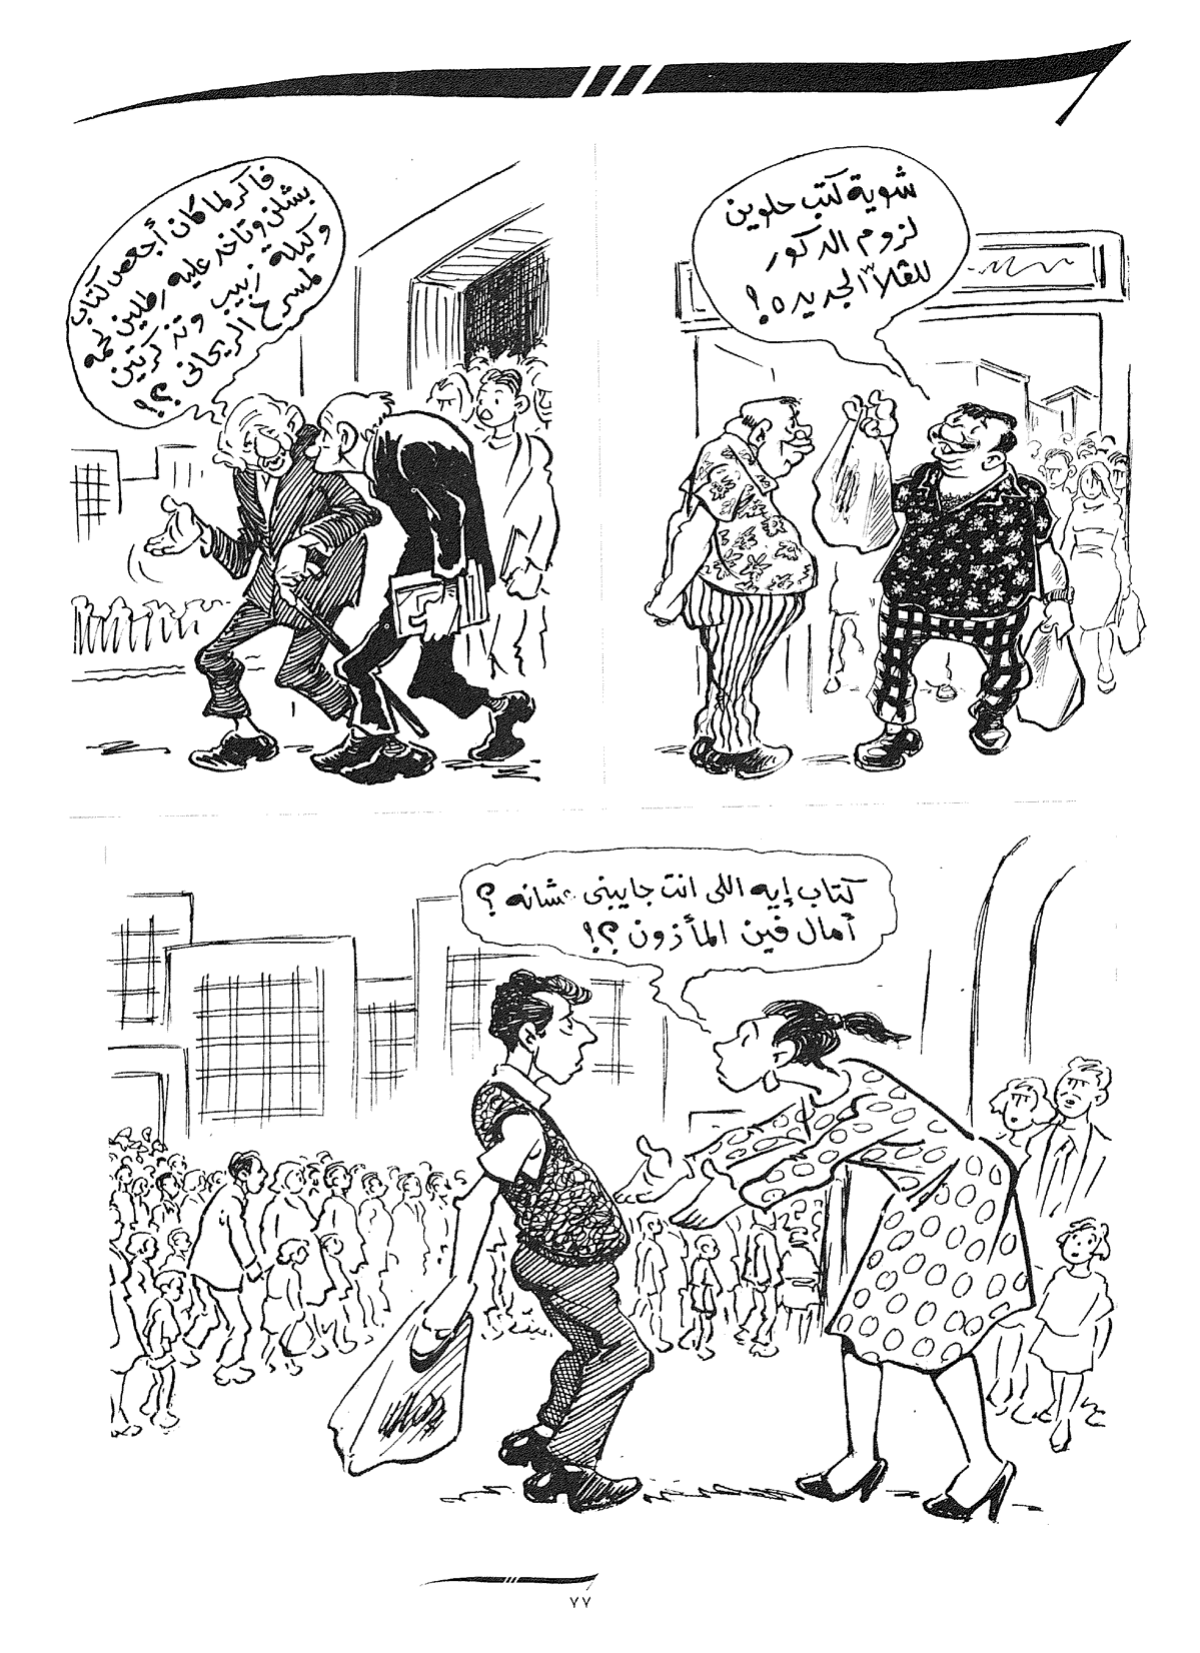 شوية كتب حلوين
لزوم الدكور
للڤلا الجديده!؟
فاكر لما كان أجعص كتاب
بشلن وتاخد عليه رطلين لحمه
وكيلة زبيب وتذكرتين
لمسرح الريحانى ؟!
كتاب إيه اللى انت جايبنى عشانه ؟
أمال فين المأذون ؟!
٧٧